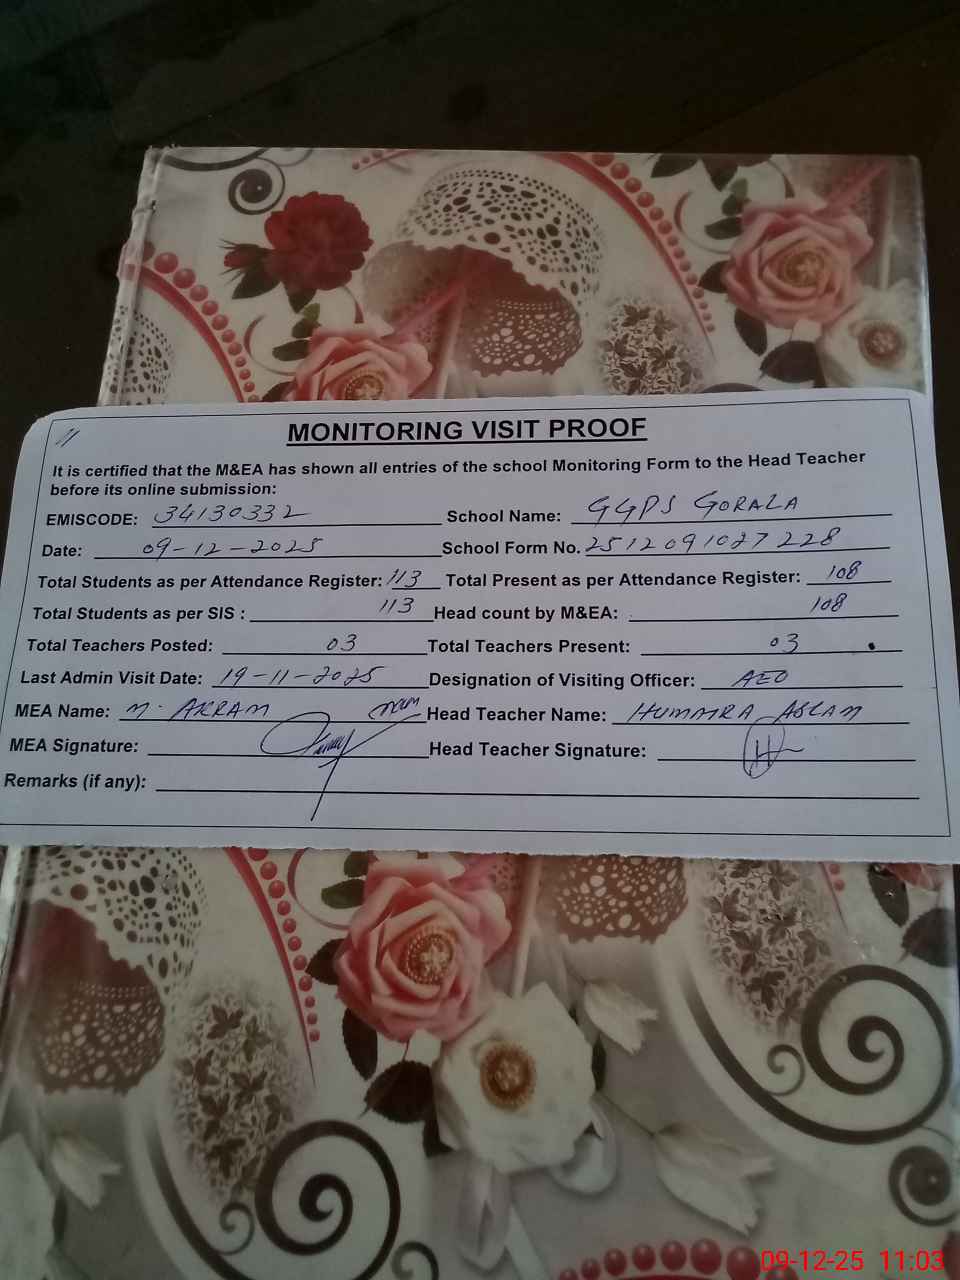 11
MONITORING VISIT PROOF
It is certified that the M&EA has shown all entries of the school Monitoring Form to the Head Teacher
before its online submission:
EMISCODE: 34130332 School Name: GGPS GORALA
Date: 09-12-2025 School Form No. 2512091027228
Total Students as per Attendance Register: 113 Total Present as per Attendance Register: 108
Total Students as per SIS : 113 Head count by M&EA: 108
Total Teachers Posted: 03 Total Teachers Present: 03
Last Admin Visit Date: 19-11-2025 Designation of Visiting Officer: AEO
MEA Name: M. AKRAM Head Teacher Name: HUMAIRA ASLAM
MEA Signature: Head Teacher Signature:
Remarks (if any):
09-12-25 11:03